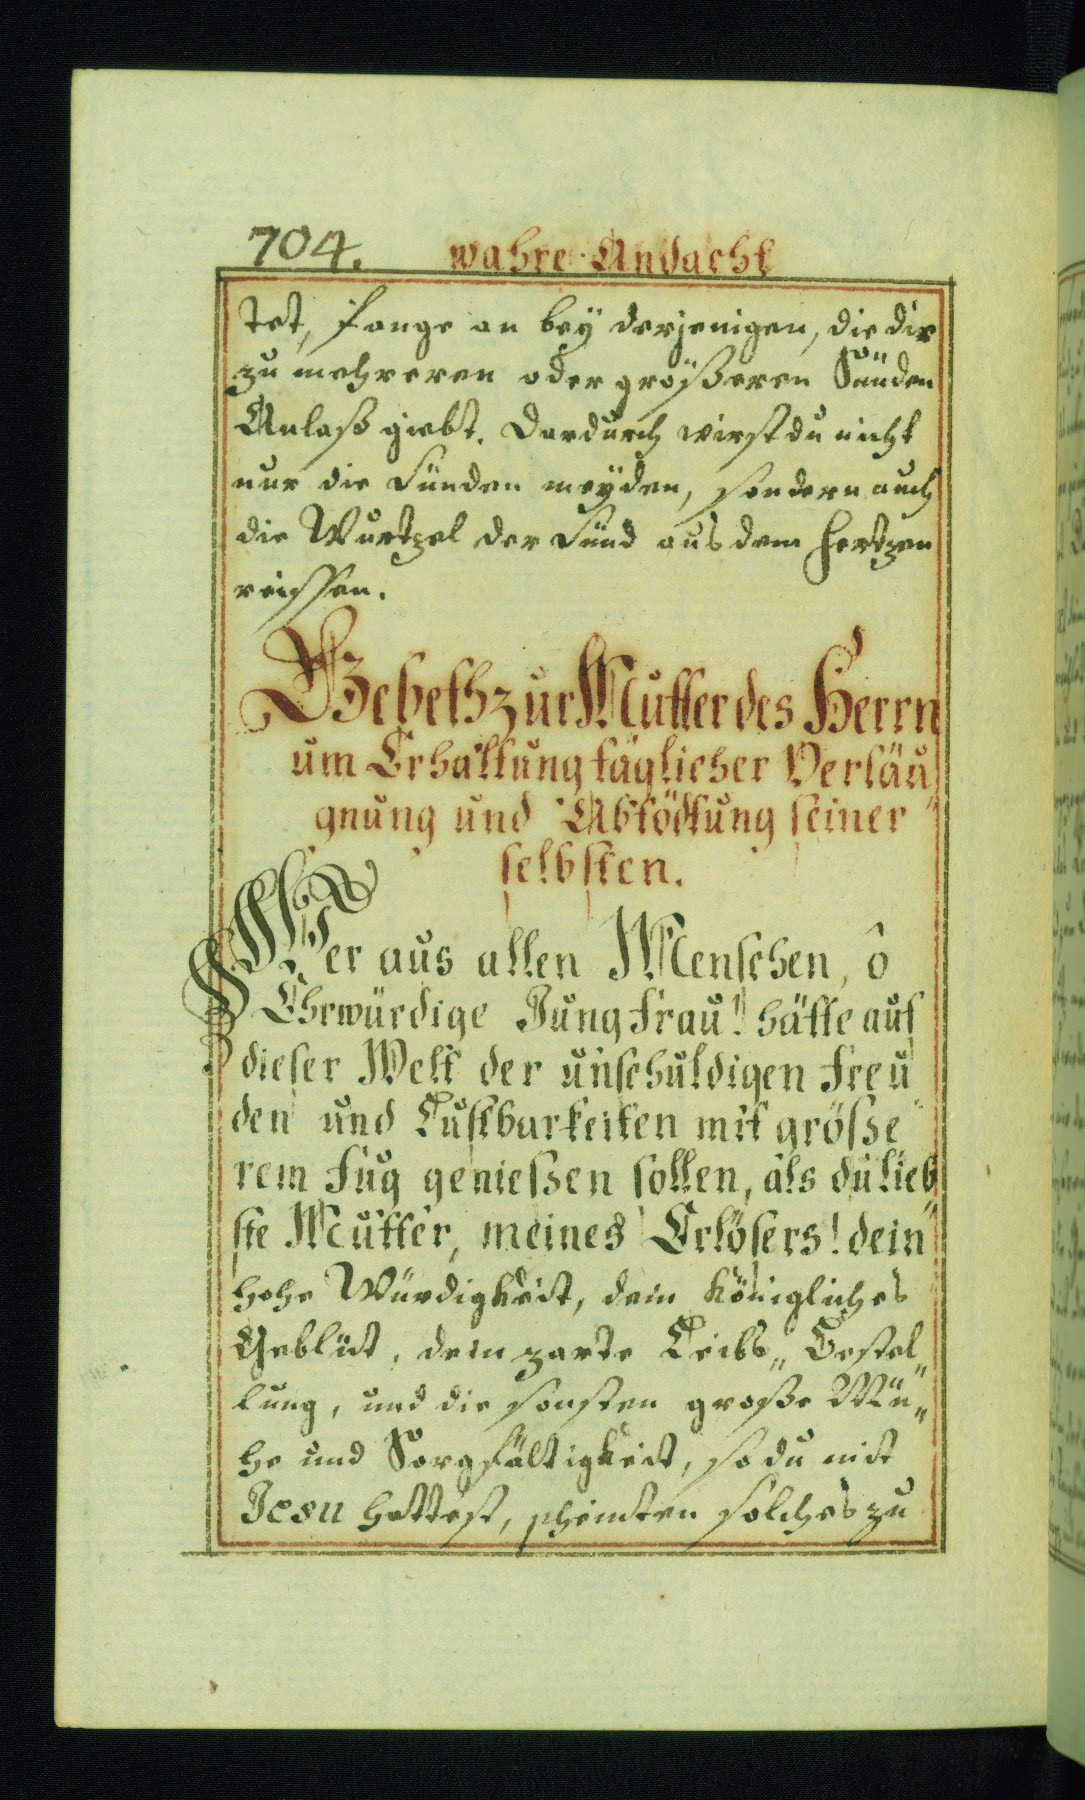 704. wahre Andacht
tet, fange an bey derjenigen, die dir
zu mehreren oder größeren Sünden
Anlaß giebt. Dardurch wirst du nicht
nur die Sünden meyden, sondern auch
die Wurtzel der Sünd aus dem Hertzen
reissen.
Gebeth zur Mutter des Herrn
um Erhaltung täglicher Verläu„
gnung und Abtödtung seiner
selbsten.
Wer aus allen Menschen, ô
Ehrwürdige Jungfrau! hätte auf
dieser Welt der unschuldigen Freu
den und Lustbarkeiten mit größe„
rem Fug genießen sollen, als du lieb„
ste Mutter, meines Erlösers! dein
hohe Würdigkeit, dein königliches
Geblüt, dein zarte Leibs„ Gestel„
lung, und die sonsten große Mü„
he und Sorgfältigkeit, so du mit
Jesu hattest, scheinten solches zu